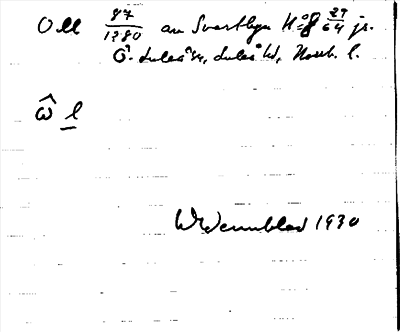 OM 87/1280 an Svartbyn H:8 29/64 jr.
Ö. Luleå sn, Luleå hd, Norrb. l.
ŵ l
W Wennblad 1930